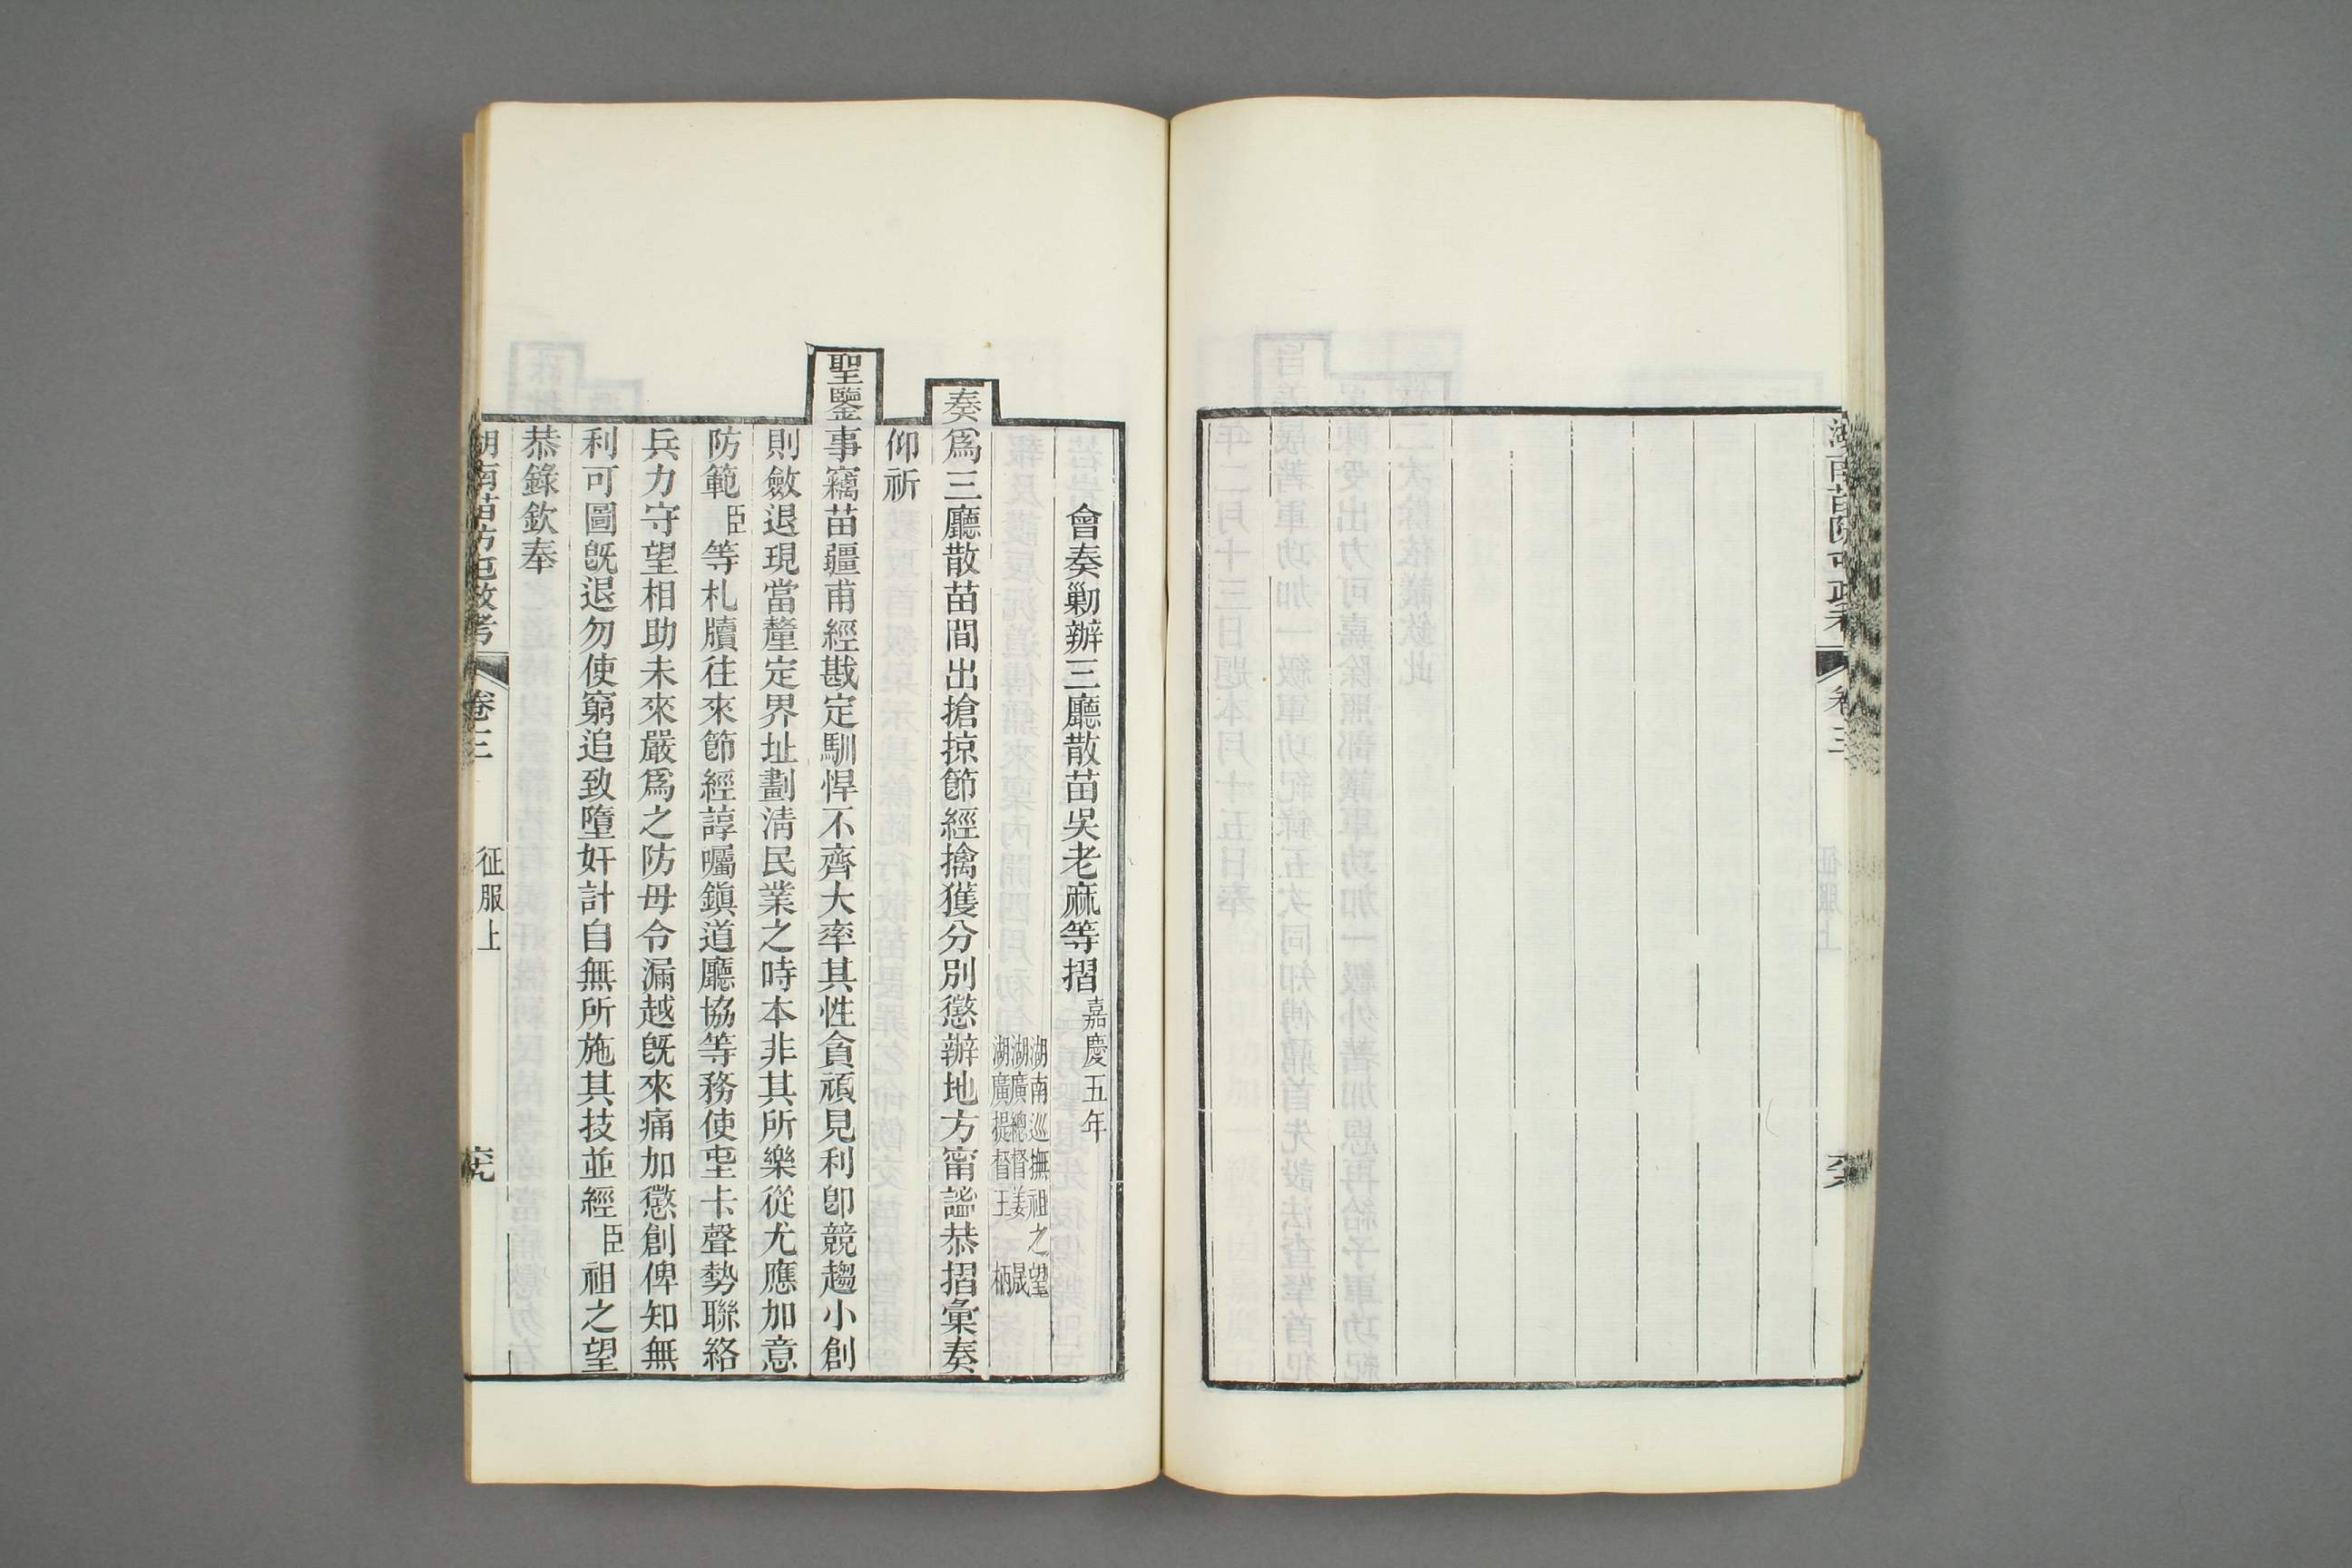 湖南苗防屯政考
卷三
會奏剿辦三廳散苗吳老麻等摺嘉慶五年
湖南巡撫祖之望
湖廣總督姜晟
湖廣提督王柄
奏爲三廳散苗間出搶掠節經擒獲分別懲辦地方甯謐恭摺彙奏
仰祈
聖鑒事竊苗疆甫經戡定馴悍不齊大率其性貪頑見利卽競趨小創
則斂退現當釐定界址劃淸民業之時本非其所樂從尤應加意
防範臣等札牘往來節經諄囑鎭道廳協等務使屯卡聲勢聯絡
兵力守望相助未來嚴爲之防毋令漏越旣來痛加懲創俾知無
利可圖旣退勿使窮追致墮奸計自無所施其技並經臣祖之望
恭錄欽奉
湖南苗防屯政考
卷三
征服上